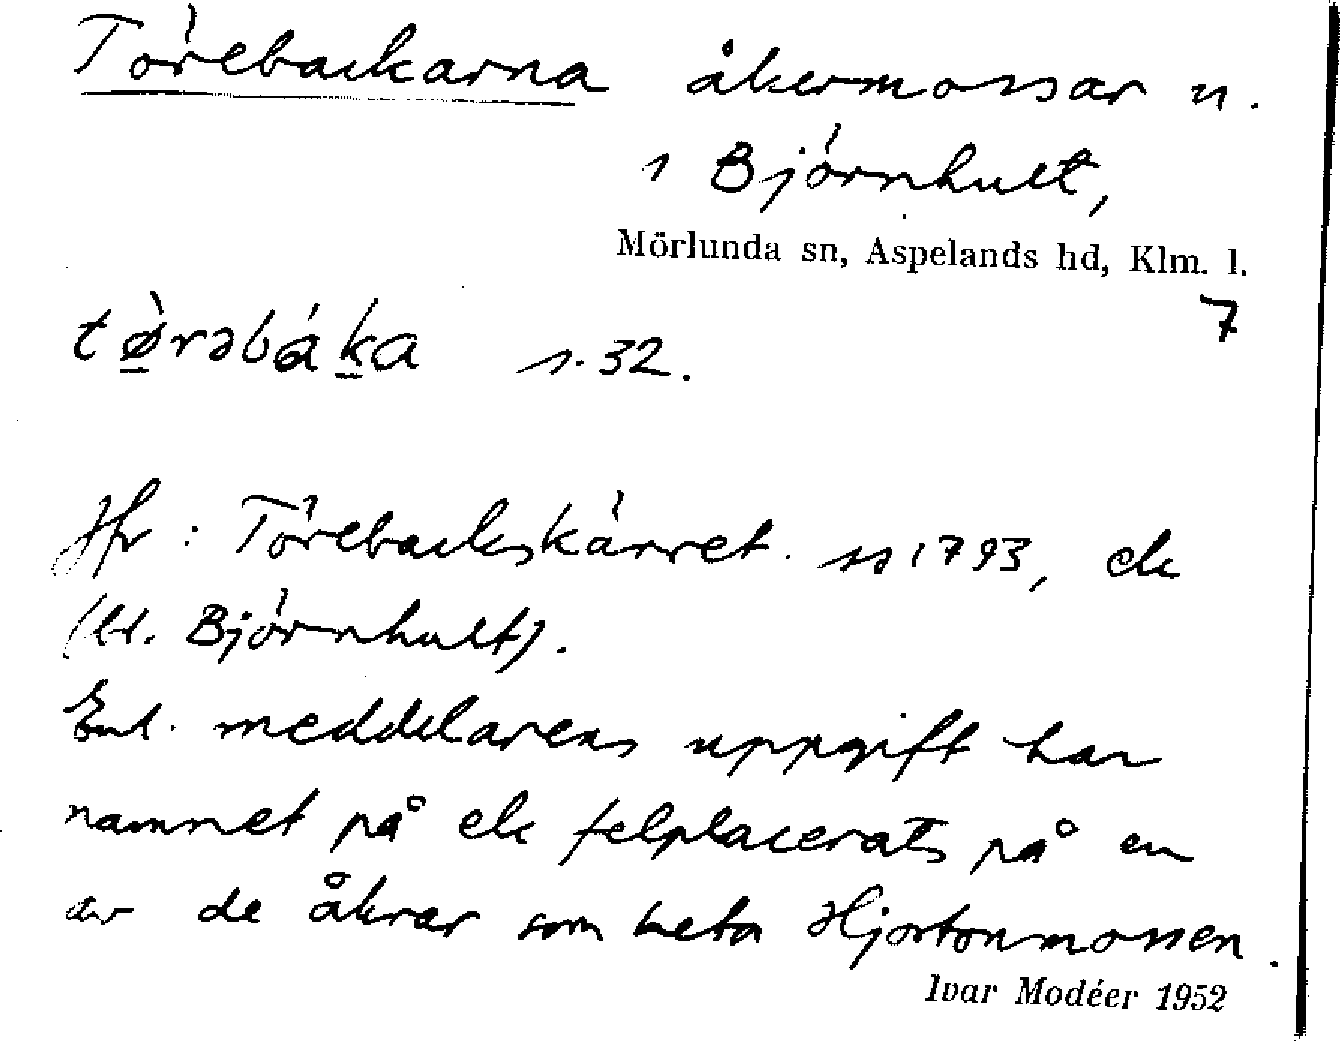 Törebackarna åkermossar n.
s Björnhult,
Mörlunda sn, Aspelands hd, Klm. l.
7
tø̀rəbáka s. 32.
Jfr: Törebackskärret ss 1793, ek
(kl. Björnhult).
Enl. meddelarens uppgift har
namnet på ek felplacerats på en
av de åkrar som heta Hjortonmossen.
Ivar Modéer 1952